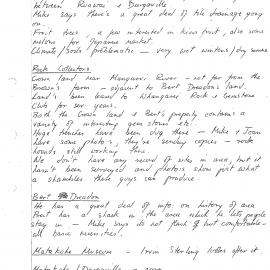 between Ruawai & Dargaville
Mike says there's a great deal of tile drainage going
on.
Fruit Area. A few interested in kiwi fruit, also some
melons for Japanese market.
Climate/Soils problematic - very wet winters/dry summer
Rock Collectors.
Crown land near Mangawai River - not far from the
Brown's farm - adjacent to Bert Dreadon's land.
Land's been leased to Whangarei Rock & Gemstone
Club for years.
Both the Crown land & Bert's property contains a
variety of interesting gemstones etc.
Huge trenches have been dug there - Mike & Joan
have some photos, they're sending copies - rock
hounds still working there.
We don't have any record of sites in area, but it
hasn't been surveyed and photos show just what
a shambles these guys can produce.
Bert Dreadon
He has a great deal of info. on history of area
Bert has a shack in the area which he lets people
stay in - Mike says do not plans & not comfortable -
all basic amenities!
Matakohe Museum - Mervin Sterling looks after it.